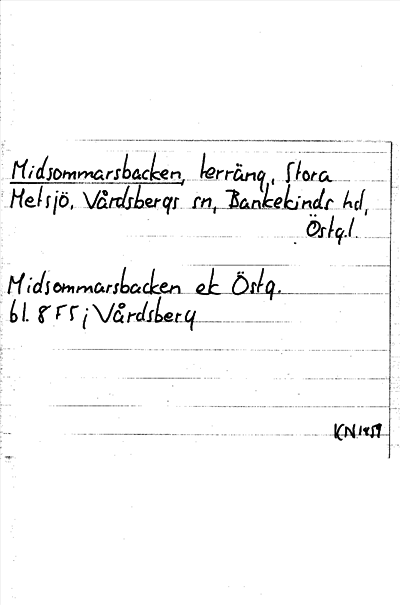 Midsommarsbacken, terräng, Stora
Metsjö, Vårdsbergs sn, Bankekinds hd,
Östg.l.
Midsommarsbacken ek Östg.
bl. 8 F5 j Vårdsberg
KN 1959